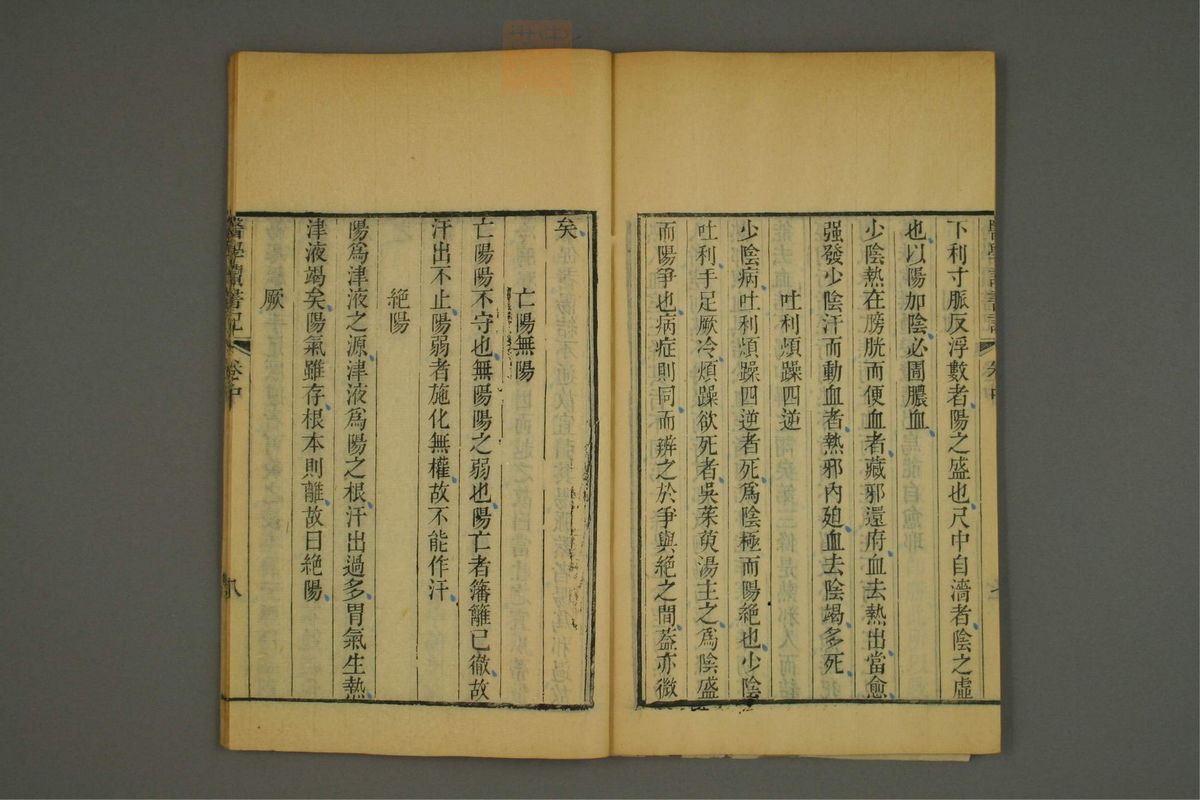 下利寸脈反浮數者陽之盛也尺中自濇者陰之虛
也以陽加陰必圊膿血
少陰熱在膀胱而便血者藏邪還府血去熱出當愈
强發少陰汗而動血者熱邪內廹血去陰竭多死
吐利煩躁四逆
少陰病吐利煩躁四逆者死爲陰極而陽絶也少陰
吐利手足厥冷煩躁欲死者吳茱萸湯主之爲陰盛
而陽爭也病症則同而辨之於爭與絶之間葢亦微
矣
亡陽無陽
亡陽陽不守也無陽陽之弱也陽亡者藩籬已徹故
汗出不止陽弱者施化無權故不能作汗
絶陽
陽爲津液之源津液爲陽之根汗出過多胃氣生熱
津液竭矣陽氣雖存根本則離故曰絶陽
厥
醫學讀書記 卷中 八